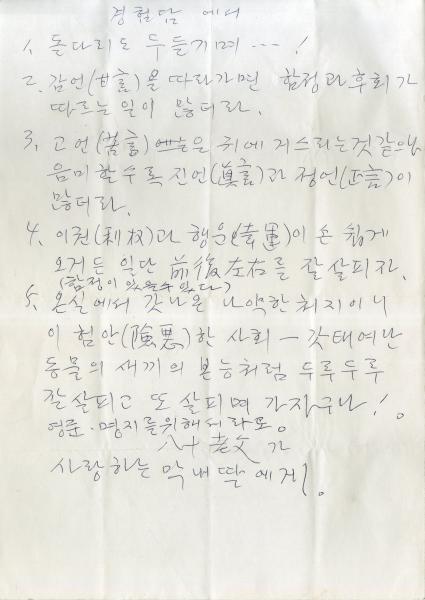 경험담 에서
1. 돌다리도 두들기며 … !
2. 감언(甘言)을 따라가면 함정과 후회가
따르는 일이 많더라.
3. 고언(苦言)은 귀에 거스리는것 같으나
음미 할수록 진언(眞言)과 정언(正言)이
많더라.
4. 이권(利权)과 행운(幸運)이 손쉽게
오거든 일단 前後左右를 잘 살피자.
(함정이 있을수 있다)
5. 온실에서 갓나온 나약한 처지이니
이 험악(險惡)한 사회 – 갓태여난
동물의 새끼의 본능처럼 두루두루
잘살피고 또 살피며 가자구나!。
영준·명지를위해서라도。
八十 老父가
사랑하는 막내딸에게!。